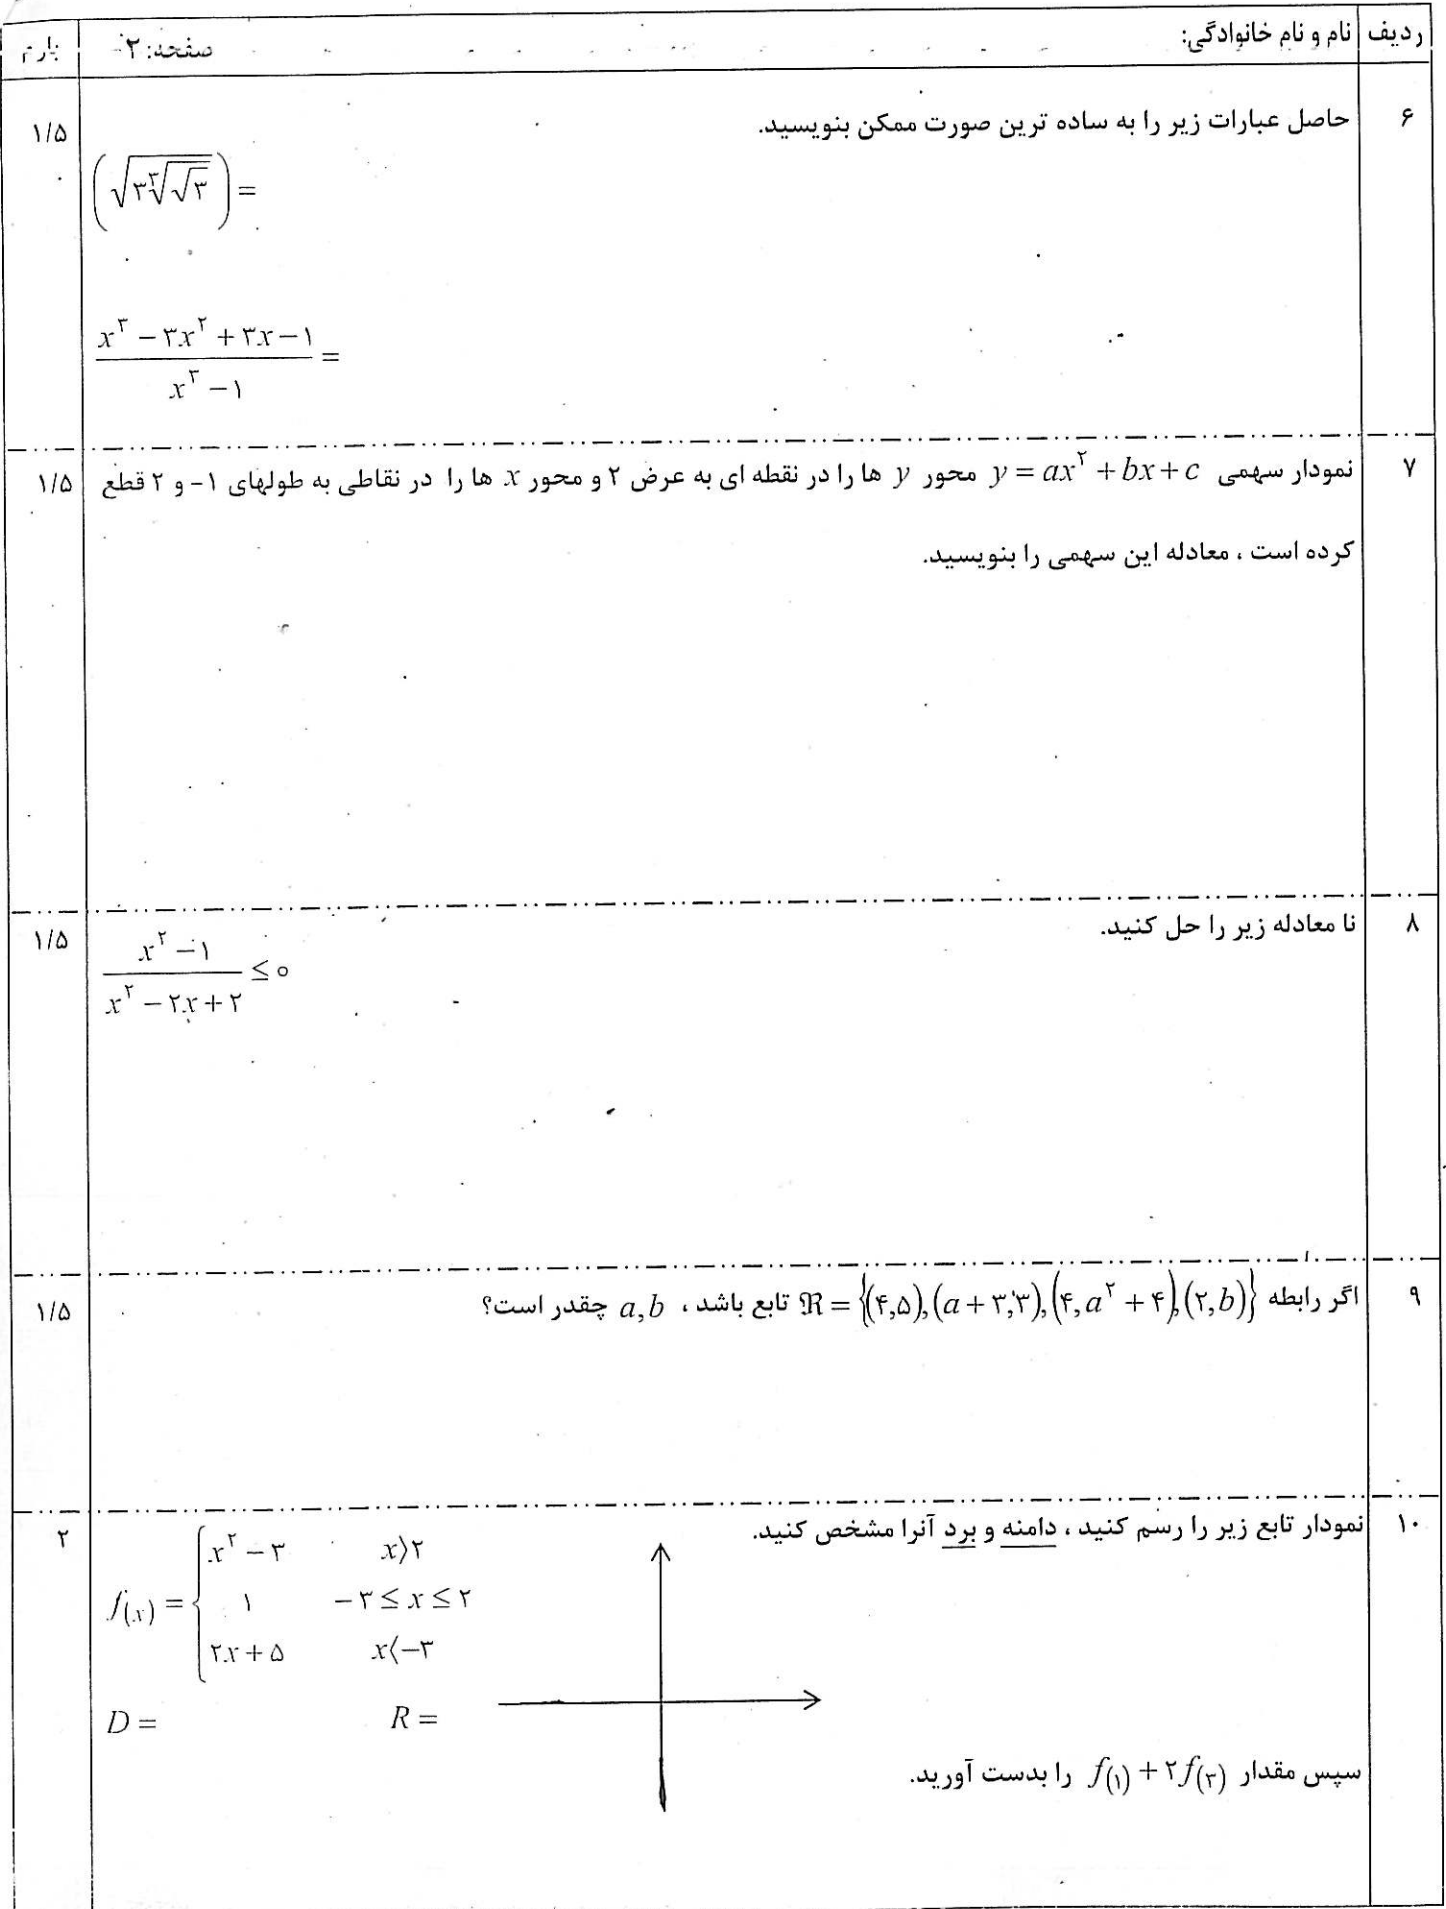 ردیف نام و نام خانوادگی: صفحه: ۲ بارم
۶ حاصل عبارات زیر را به ساده ترین صورت ممکن بنویسید. ۱/۵
(√(۳∛(√۳))) =
(x³ − ۳x² + ۳x − ۱) / (x³ − ۱) =
۷ نمودار سهمی y = ax² + bx + c محور y ها را در نقطه ای به عرض ۲ و محور x ها را در نقاطی به طولهای ۱- و ۲ قطع ۱/۵
کرده است ، معادله این سهمی را بنویسید.
۸ نا معادله زیر را حل کنید. ۱/۵
(x² − ۱) / (x² − ۲x + ۲) ≤ ۰
۹ اگر رابطه ℜ = {(۴,۵),(a + ۳,۳),(۴,a² + ۴),(۲,b)} تابع باشد ، a,b چقدر است؟ ۱/۵
۱۰ نمودار تابع زیر را رسم کنید ، دامنه و برد آنرا مشخص کنید. ۲
x² − ۳ x⟩۲
f(x) = { ۱ −۳ ≤ x ≤ ۲
۲x + ۵ x⟨−۳
D = R =
سپس مقدار f(۱) + ۲f(۳) را بدست آورید.